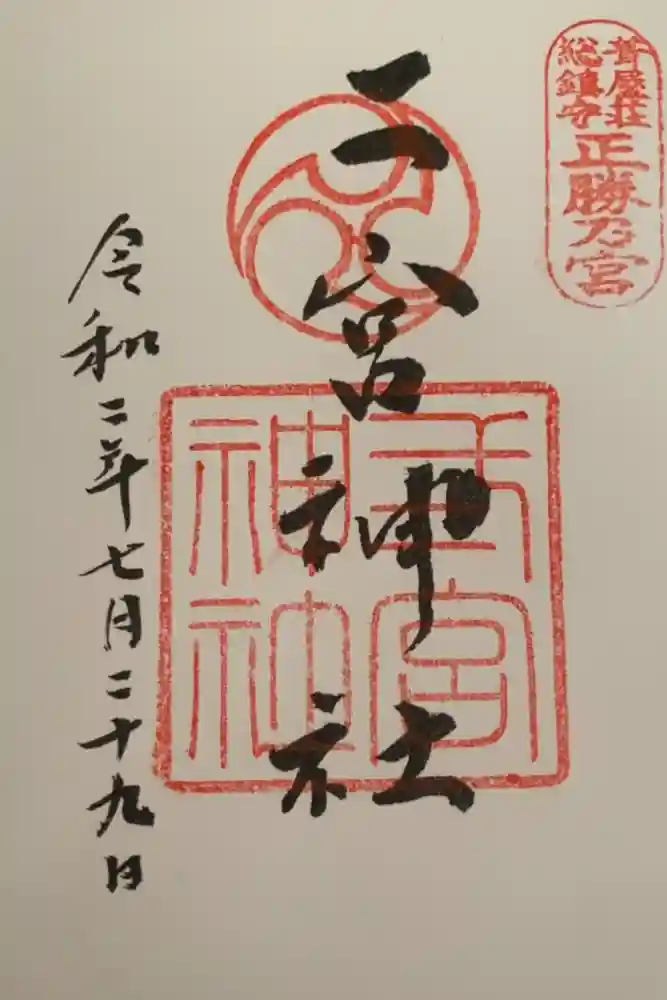 葺屋荘
総鎮守
正勝乃宮
二宮神社
弍宮
神社
令和二年七月二十九日